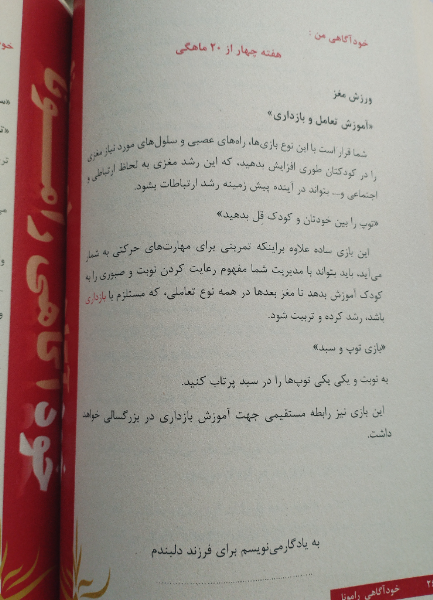 خودآگاهی من :
هفته چهار از ۲۰ ماهگی
ورزش مغز
«آموزش تعامل و بازداری»
شما قرار است با این نوع بازی‌ها، راه‌های عصبی و سلول‌های مورد نیاز مغزی
را در کودکتان طوری افزایش بدهید، که این رشد مغزی به لحاظ ارتباطی و
اجتماعی و... بتواند در آینده پیش زمینه رشد ارتباطات بشود.
«توپ را بین خودتان و کودک قل بدهید»
این بازی ساده علاوه براینکه تمرینی برای مهارت‌های حرکتی به شمار
می‌آید، باید بتواند با مدیریت شما مفهوم رعایت کردن نوبت و صبوری را به
کودک آموزش بدهد تا مغز بعدها در همه نوع تعاملی، که مستلزم با بازداری
باشد، رشد کرده و تربیت شود.
«بازی توپ و سبد»
به نوبت و یکی یکی توپ‌ها را در سبد پرتاب کنید.
این بازی نیز رابطه مستقیمی جهت آموزش بازداری در بزرگسالی خواهد
داشت.
به یادگار می‌نویسم برای فرزند دلبندم
خودآگاهی رامونا
خودآگاهی رامونا